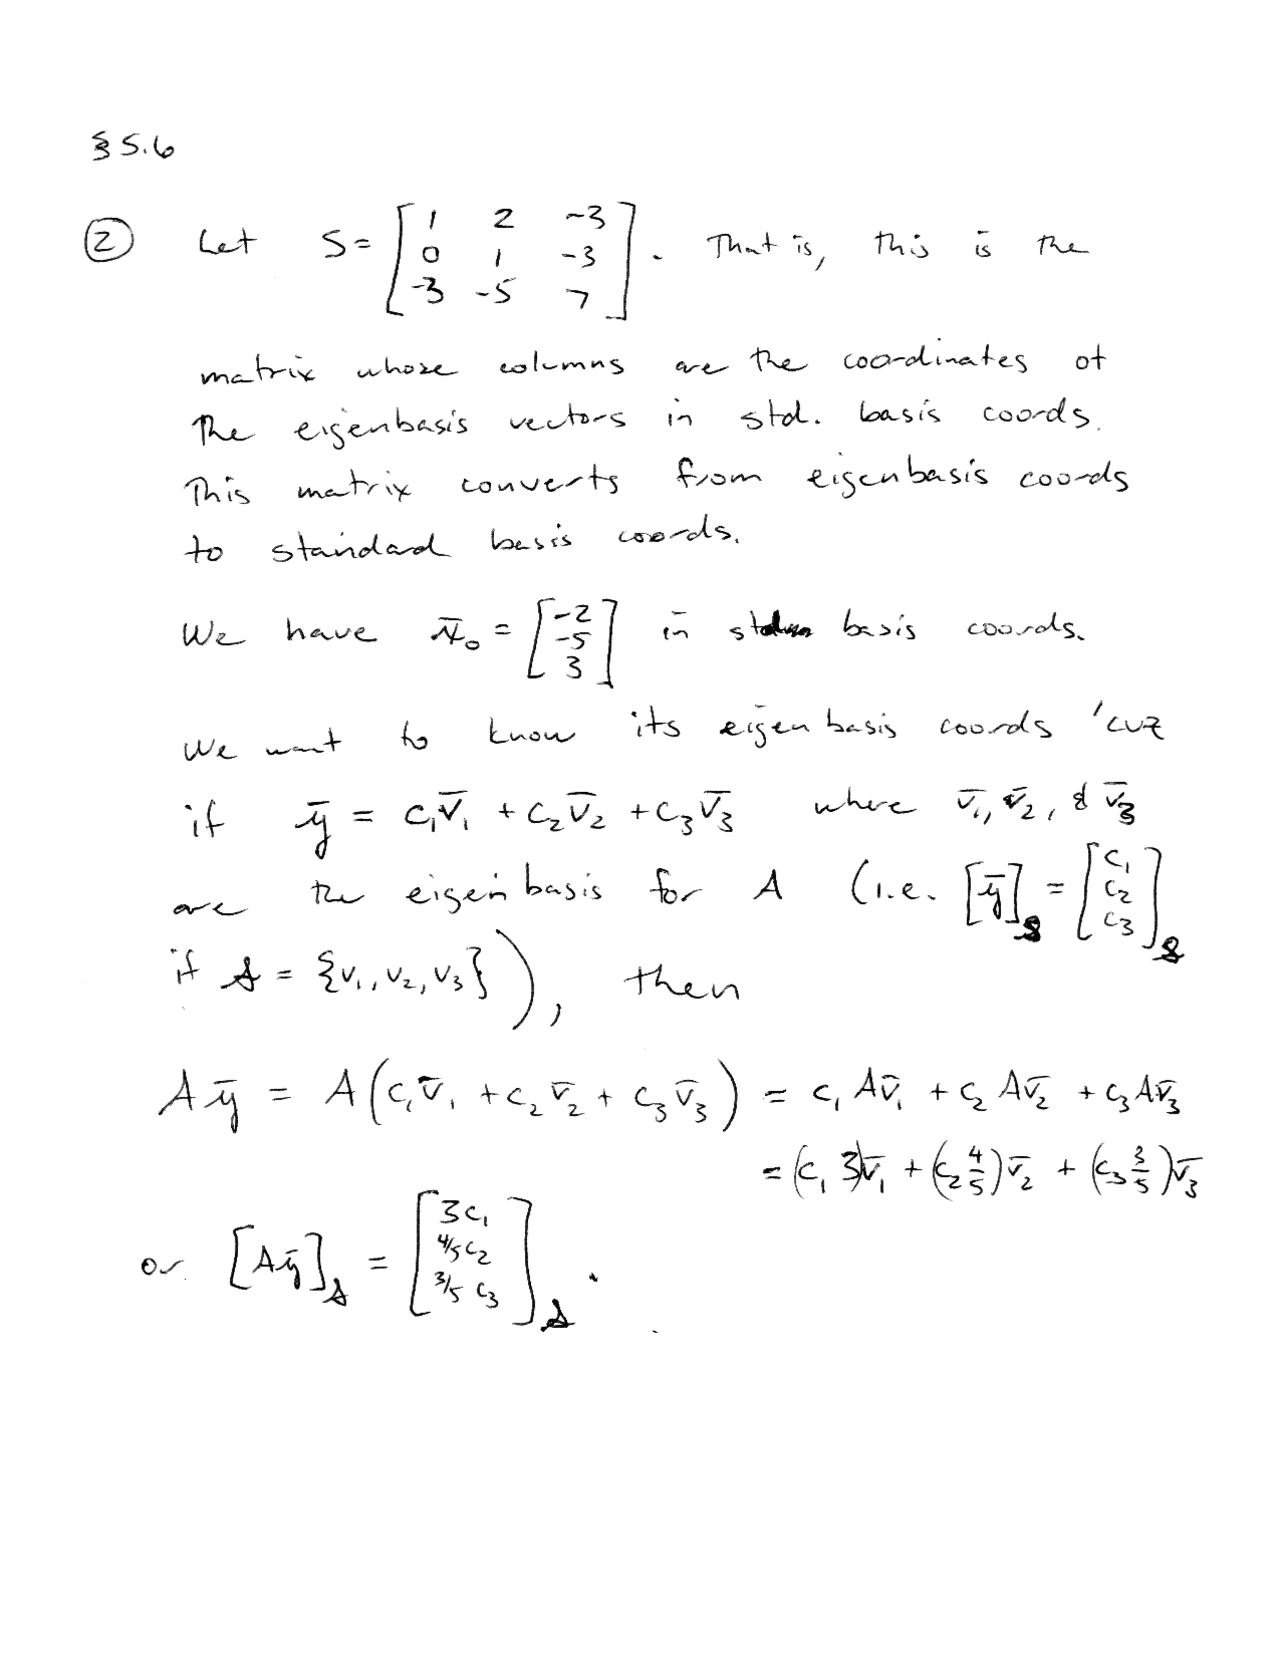 § 5.6
② Let S = [1 2 -3; 0 1 -3; -3 -5 7]. That is, this is the
matrix whose columns are the coordinates of
the eigenbasis vectors in std. basis coords.
This matrix converts from eigenbasis coords
to standard basis coords.
We have x̄₀ = [-2; -5; 3] in basis coords.
We want to know its eigenbasis coords 'cuz
if ȳ = c₁v̄₁ + c₂v̄₂ + c₃v̄₃ where v̄₁, v̄₂, & v̄₃
are the eigenbasis for A (i.e. [ȳ]_S = [c₁; c₂; c₃]_S
if S = {v₁, v₂, v₃}), then
Aȳ = A(c₁v̄₁ + c₂v̄₂ + c₃v̄₃) = c₁Av̄₁ + c₂Av̄₂ + c₃Av̄₃
= (c₁3)v̄₁ + (c₂ 4/5)v̄₂ + (c₃ 3/5)v̄₃
or [Aȳ]_S = [3c₁; 4/5 c₂; 3/5 c₃]_S.